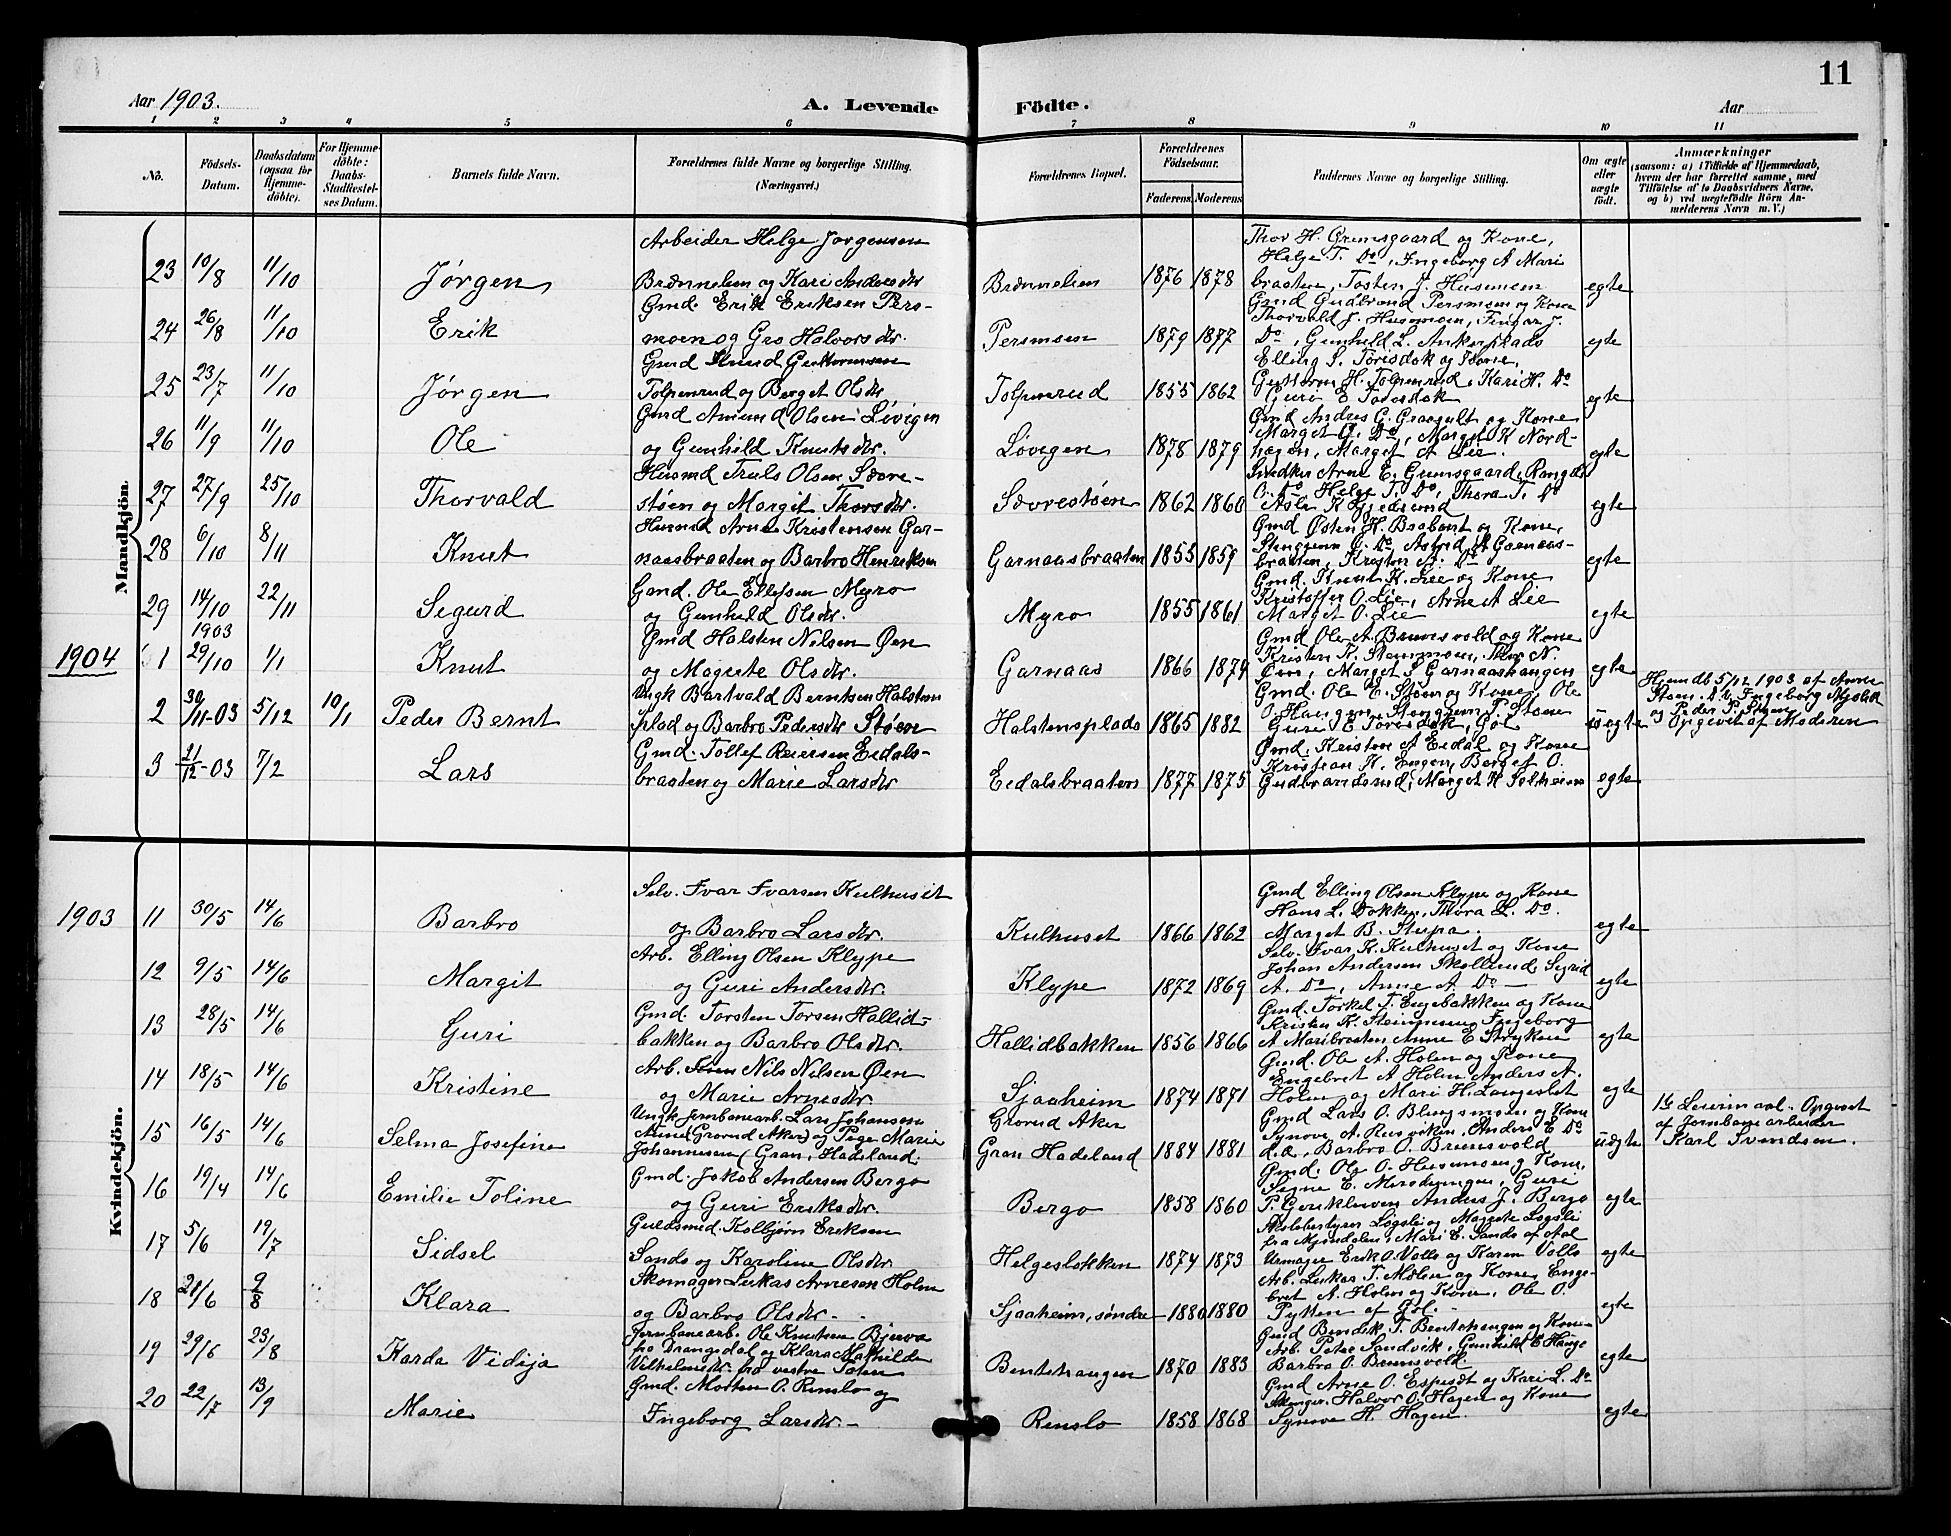 11
Aar 1903. A. Levende Födte. Aar
1 2 3 4 5 6 7 8 9 10 11
No. Födsels-Datum. Daabsdatum (ogsaa for Hjemmedöbte). For Hjemmedöbte: Daabs-Stadfæstelses Datum. Barnets fulde Navn. Forældrenes fulde Navne og borgerlige Stilling. (Næringsvei.) Forældrenes Bopæl. Forældrenes Födselsaar. Faderens Moderens Faddernes Navne og borgerlige Stilling. Om ægte eller uægte födt. Anmærkninger (saasom: a) i Tilfælde af Hjemmedaab, hvem der har forrettet samme, med Tilföielse af to Daabsvidners Navne, og b) ved uægtefödte Börn Anmelderens Navn m. V.)
Mandkjön.
23 10/8 11/10 Jørgen Arbeider Helge Jørgensen Brønnelien og Kari Andersdtr Brønnelien 1876 1878 Thor H. Gremsgaard og Kone, Helge T. Do, Ingeborg A Maribraaten, Tosten J. Husmoen egte
24 26/8 11/10 Erik Gmd. Erik Eriksen Persmoen og Gro Halvorsdtr. Persmoen 1879 1877 Gmd Gudbrand Persmoen og Kone Thorvald J. Husmoen, Ingar J. Do, Gunhild L. Ankerplads egte
25 23/7 11/10 Jørgen Gmd Knud Guttormsen Tolpenrud og Berget Olsdtr. Tolpenrud 1855 1862 Elling S. Torisdok og Kone, Guttorm H. Tolpenrud, Kari H. Do Guro E Torisdok egte
26 11/9 11/10 Ole Gmd Amund Olsen Løvigen og Gunhild Knutsdtr. Løvigen 1878 1879 Gmd Andres G. Graagult og Kone Marget G. Do, Marget K Nordhagen, Marget A Lie. egte
27 27/9 25/10 Thorvald Husmd Truls Olsen Sævrestøen og Margit Thorsdtr. Sævrestøen 1862 1860 Snedker Arne E. Gremsgaard, Rangdi O. Do Helge T. Do, Thora T. Do Asle K Gjedremd egte
28 6/10 8/11 Knut Husmd Arne Kristensen Garnaasbraaten og Barbro Henriksen Garnaasbraaten 1853 1859 Gmd Østen H. Brabrat og Kone, Stengrim O. Do, Astrid A Garnaasbraaten, Kristen A. Do egte
29 14/10 22/11 Sigurd Gmd. Ole Ellefsen Myro og Gunhild Olsdtr. Myro 1855 1861 Gmd. Knut K. Lie og Kone Kristoffer O. Lie, Arne A Lie Marget O. Lie egte
1904 1 1903 29/10 1/1 Knut Gmd Halsten Nilsen Øen og Magrete Olsdtr. Garnaas 1866 1874 Gmd Ole A. Brunsvold og Kone Kristen K. Stenmoen, Thor N. Øen, Marget S Garnaashangen egte
2 30/11-03 5/12 10/1 Peder Bernt Ungk Bartvald Berntsen Halstensplad og Barbro Pedersdtr Støen Halstensplads 1865 1882 Gmd. Ole E. Støen og Kone, Ole O. Haugen, Stengrim P. Støen Guri E Torisdok, Gol uegte Hjemdb 5/12 1903 af Anne Støen. D.V. Ingeborg og Peder P. Støen Opgivet af Moderen
3 21/12-03 7/2 Lars Gmd. Tollef Reiersen Eidalsbraaten og Marie Larsdtr Eidalsbraaten 1877 1875 Gmd, Kristen A Eidal og Kone Kristian H. Engen, Berget O. Gudbrandsmd, Marget H Solheim egte
Kvindekjön.
1903 11 30/5 14/6 Barbro Selv. Ivar Ivarsen Kulhuset og Barbro Larsdtr. Kulhuset 1866 1862 Gmd Elling Olsen Klype og Kone Hans L. Dokken, Thora L. Do. Marget B. Stupa. egte
12 9/5 14/6 Margit Arb. Elling Olsen Klype og Guri Andersdtr. Klype 1872 1869 Selv. Ivar K. Kulhuset og Kone Johan Andersen Skollund Sigrid A. Do, Anne A Do egte
13 28/5 14/6 Guri Gmd. Torsten Torsen Hallidbakken og Barbro Olsdtr. Hallidbakken 1856 1866 Gmd. Torkel T. Engebakken og Kone Kristen K. Stenmoen, Ingeborg A Maribraaten Anne E Stryken egte
14 18/5 14/6 Kristine Arb. Nils Nilsen Øen og Marie Arnesdtr. Sjaaheim 1874 1871 Gmd. Ole A. Holm og Kone, Engebret A Holm Anders A. Holm og Mari H. Langeslet egte
15 16/5 14/6 Selma Josefine Ungk Jernbanearb. Lars Johansen (Grorud Aker) og Pige Marie Johannesen (Gran, Hadeland) Grorud Aker Gran Hadeland 1884 1881 Gmd Lars O. Blingsmoen og Kone Synøve A. Rusviken, Anders E Do Barbro O. Brunsvold uegte 1ste Leiermaal. Opgivet af Jernbanearbeider Karl Svendsen.
16 19/4 14/6 Emilie Toline Gmd. Jakob Andersen Bergo og Guri Eriksdtr. Bergo 1858 1860 Gmd. Ole O. Husmoen og Kone, Signe E. Guri P. Anders J. Bergo egte
17 5/6 19/7 Sidsel Guldsmed Kolbjørn Eriksen Sando og Karoline Olsdtr. Helgesløkken 1874 1873 Skolebestyrer Løgsli og Magrete Løgsli fra Mjøndalen, Mari E. Sando af Aal Urmager Erik O. Vollo og Karen Vollo egte
18 21/6 9/8 Klara Skomager Lukas Arnesen Holm og Barbro Olsdtr. Sjaaheim, søndre 1880 1880 Arb. Lukas T. Moen og Kone, Engebret A. Holm og Kone, Ole O. Pytten af Gol. egte
19 29/6 23/8 Karda Vidija Jernbanearb. Ole Knutsen Bjerva fra Drangedal og Klara Mathilde Vilhelmsdtr. fra vestre Toten Bentehaugen 1870 1883 Gmd Bendik T. Bentehaugen og Kone Arb. Peter Sandvik, Gunhild E Hauge Barbro O. Brunsvold. egte
20 22/7 13/9 Marie Gmd. Morten O. Renslo og Ingeborg Larsdtr. Renslo 1858 1868 Gmd Arne O. Espesdt og Kari L. Do Halvor O. Hagen og Kone Synøve H. Hagen. egte